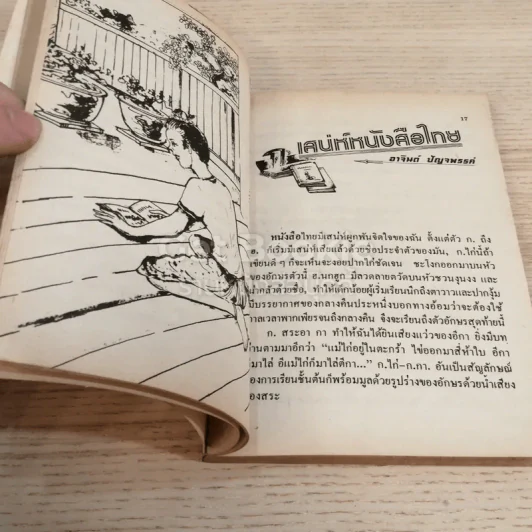 17
เสน่ห์หนังสือไทย
อาจินต์ ปัญจพรรค์
หนังสือไทยมีเสน่ห์ผูกพันจิตใจของฉัน ตั้งแต่ตัว ก. ถึง
ฮ. ก็เริ่มมีเสน่ห์เสียแล้วด้วยชื่อประจำตัวของมัน, ก.ไก่นี้ถ้า
เขียนดี ๆ ก็จะเห็นจะงอยปากไก่ชัดเจน ชะโงกออกมาบนหัว
ของอักษรตัวนี้ ฮ.นกฮูก มีลวดลายตวัดบนหัวชวนงุนงง และ
ทำให้เด็กน้อยผู้เริ่มเรียนนึกถึงตาวาวและปากงุ้ม
บรรยากาศของกลางคืนประหนึ่งบอกทางอ้อมว่าจะต้องใช้
เวลาพากเพียรจนถึงกลางคืน จึงจะเรียนถึงตัวอักษรสุดท้ายนี้
ก. สระอา กา ทำให้ฉันได้ยินเสียงแว่วของอีกา ยิ่งมีบท
ตามมาอีกว่า “แม่ไก่อยู่ในตะกร้า ไข่ออกมาสี่ห้าใบ อีกา
มาไล่ อีแม่ไก่ก็มาไล่ตีกา...” ก.ไก่-ก.กา. อันเป็นสัญลักษณ์
ของการเรียนชั้นต้นก็พร้อมมูลด้วยรูปร่างของอักษรด้วยน้ำเสียง
ของสระ